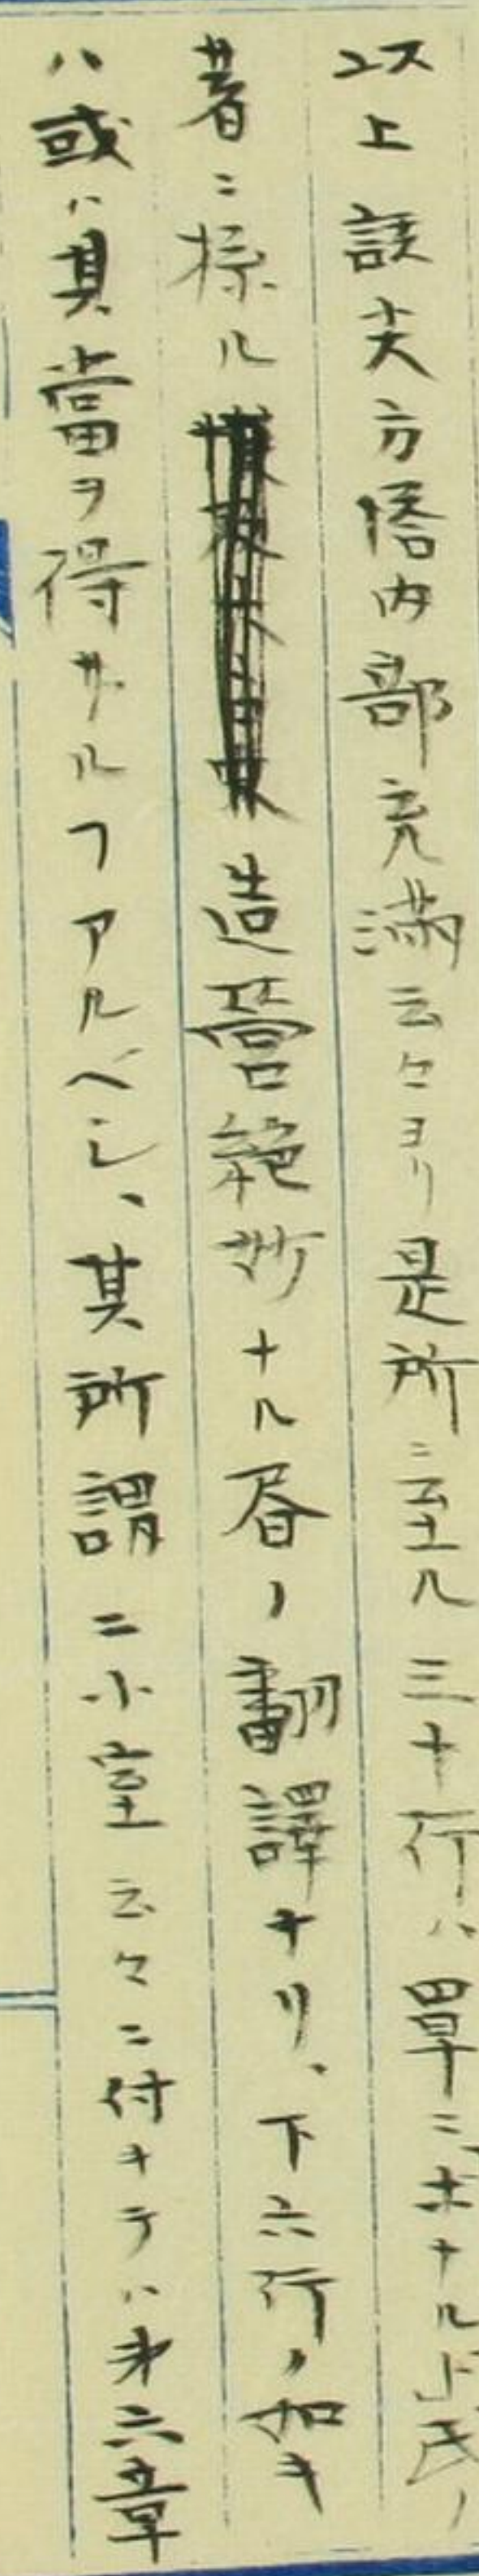 以上該尖方塔内部充満云々ヨリ是所ニ至ル三十行ハ単ニホナル ト氏ノ
著ニ採ル造営絶妙ナル昏ノ翻譯ナリ、下六行ノ如キ
ハ或ハ其當ヲ得サルヿアルベシ、其所謂二小室云々ニ付キテハ第六章